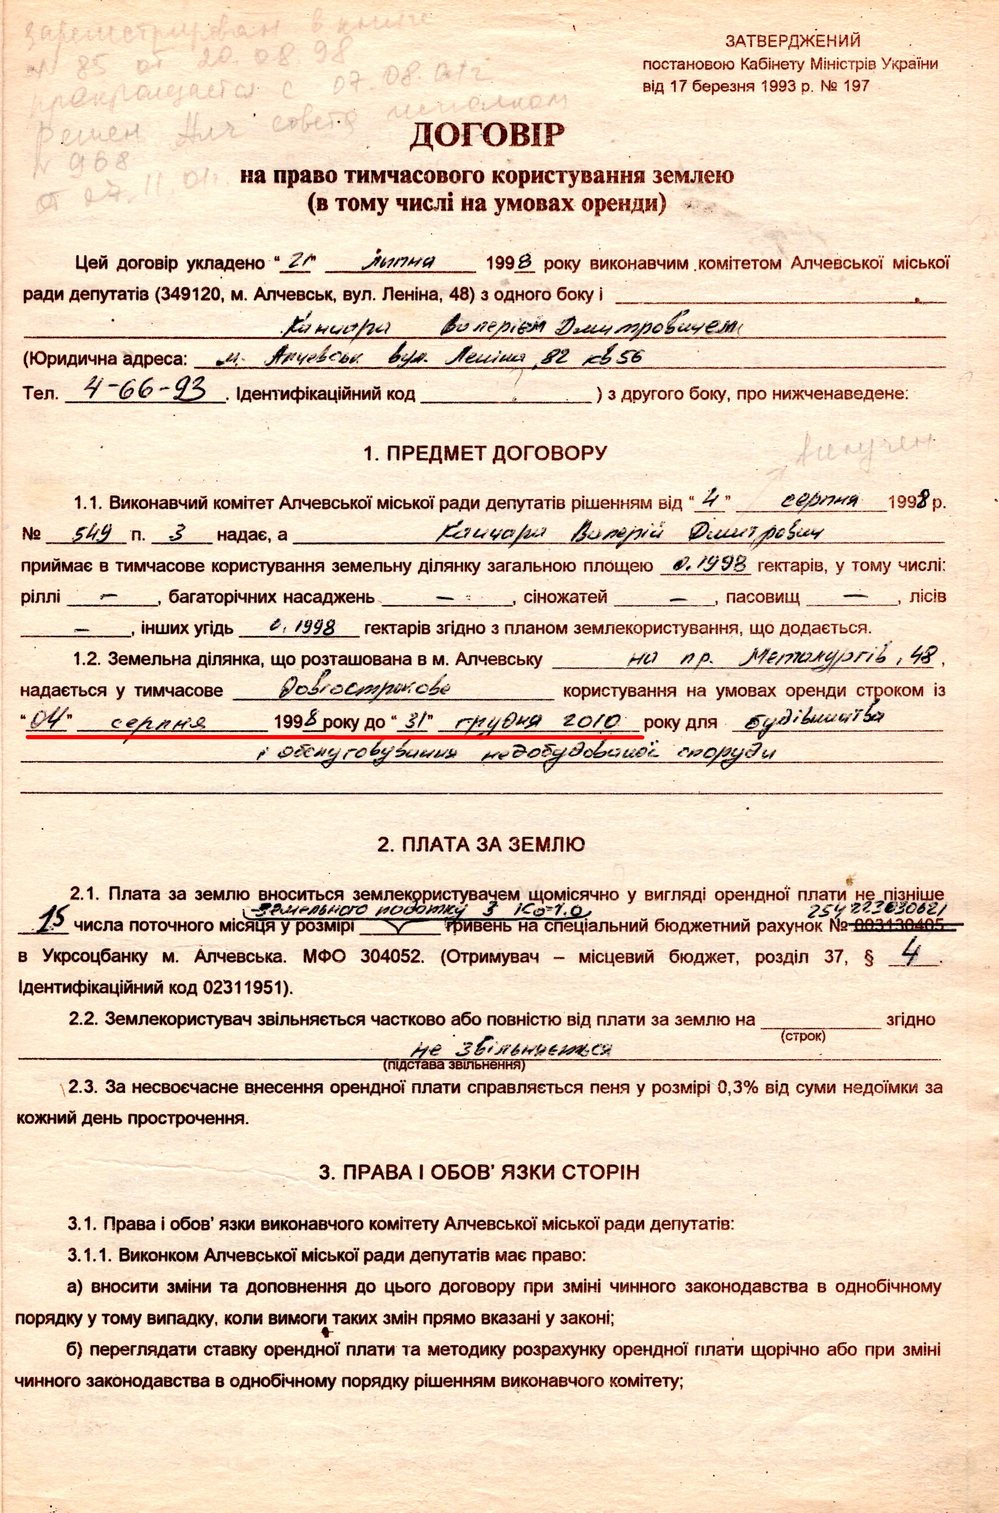 зарегистрирован в книге
N 85 от 20.08.98
прекращается с 07.08.01г.
Решен Алч совета исполком
N 968
от 27.11.01г.
ЗАТВЕРДЖЕНИЙ
постановою Кабінету Міністрів України
від 17 березня 1993 р. № 197
ДОГОВІР
на право тимчасового користування землею
(в тому числі на умовах оренди)
Цей договір укладено “ 21 ” липня 1998 року виконавчим комітетом Алчевської міської
ради депутатів (349120, м. Алчевськ, вул. Леніна, 48) з одного боку і
Валерієм Дмитровичем
(Юридична адреса: м. Алчевськ вул. Леніна, 82 кв 56
Тел. 4-66-93. Ідентифікаційний код ) з другого боку, про нижченаведене:
1. ПРЕДМЕТ ДОГОВОРУ
1.1. Виконавчий комітет Алчевської міської ради депутатів рішенням від “ 4 ” серпня 1998 р.
№ 549 п. 3 надає, а Валерій Дмитрович
приймає в тимчасове користування земельну ділянку загальною площею 0.1998 гектарів, у тому числі:
ріллі –, багаторічних насаджень –, сіножатей –, пасовищ –, лісів
–, інших угідь 0.1998 гектарів згідно з планом землекористування, що додається.
1.2. Земельна ділянка, що розташована в м. Алчевську на пр. Металургів, 48,
надається у тимчасове довгострокове користування на умовах оренди строком із
“04” серпня 1998 року до “31” грудня 2010 року для будівництва
і обслуговування недобудованої споруди
2. ПЛАТА ЗА ЗЕМЛЮ
2.1. Плата за землю вноситься землекористувачем щомісячно у вигляді орендної плати не пізніше
земельного податку з 254 223630621
15 числа поточного місяця у розмірі гривень на спеціальний бюджетний рахунок № 003130405
в Укрсоцбанку м. Алчевська. МФО 304052. (Отримувач – місцевий бюджет, розділ 37, § 4.
Ідентифікаційний код 02311951).
2.2. Землекористувач звільняється частково або повністю від плати за землю на згідно
(строк)
не звільняється
(підстава звільнення)
2.3. За несвоєчасне внесення орендної плати справляється пеня у розмірі 0,3% від суми недоїмки за
кожний день прострочення.
3. ПРАВА І ОБОВ’ ЯЗКИ СТОРІН
3.1. Права і обов’ язки виконавчого комітету Алчевської міської ради депутатів:
3.1.1. Виконком Алчевської міської ради депутатів має право:
а) вносити зміни та доповнення до цього договору при зміні чинного законодавства в однобічному
порядку у тому випадку, коли вимоги таких змін прямо вказані у законі;
б) переглядати ставку орендної плати та методику розрахунку орендної плати щорічно або при зміні
чинного законодавства в однобічному порядку рішенням виконавчого комітету;